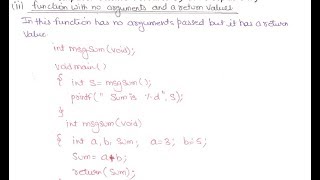 (iii) function with no arguments and a return values
In this function has no arguments passed but it has a return
value
int msgsum(void);
void main()
{ int s = msgsum();
printf("Sum is %d", s);
}
int msgsum(void)
{ int a, b, sum; a=3; b=5;
sum = a+b;
return(sum);